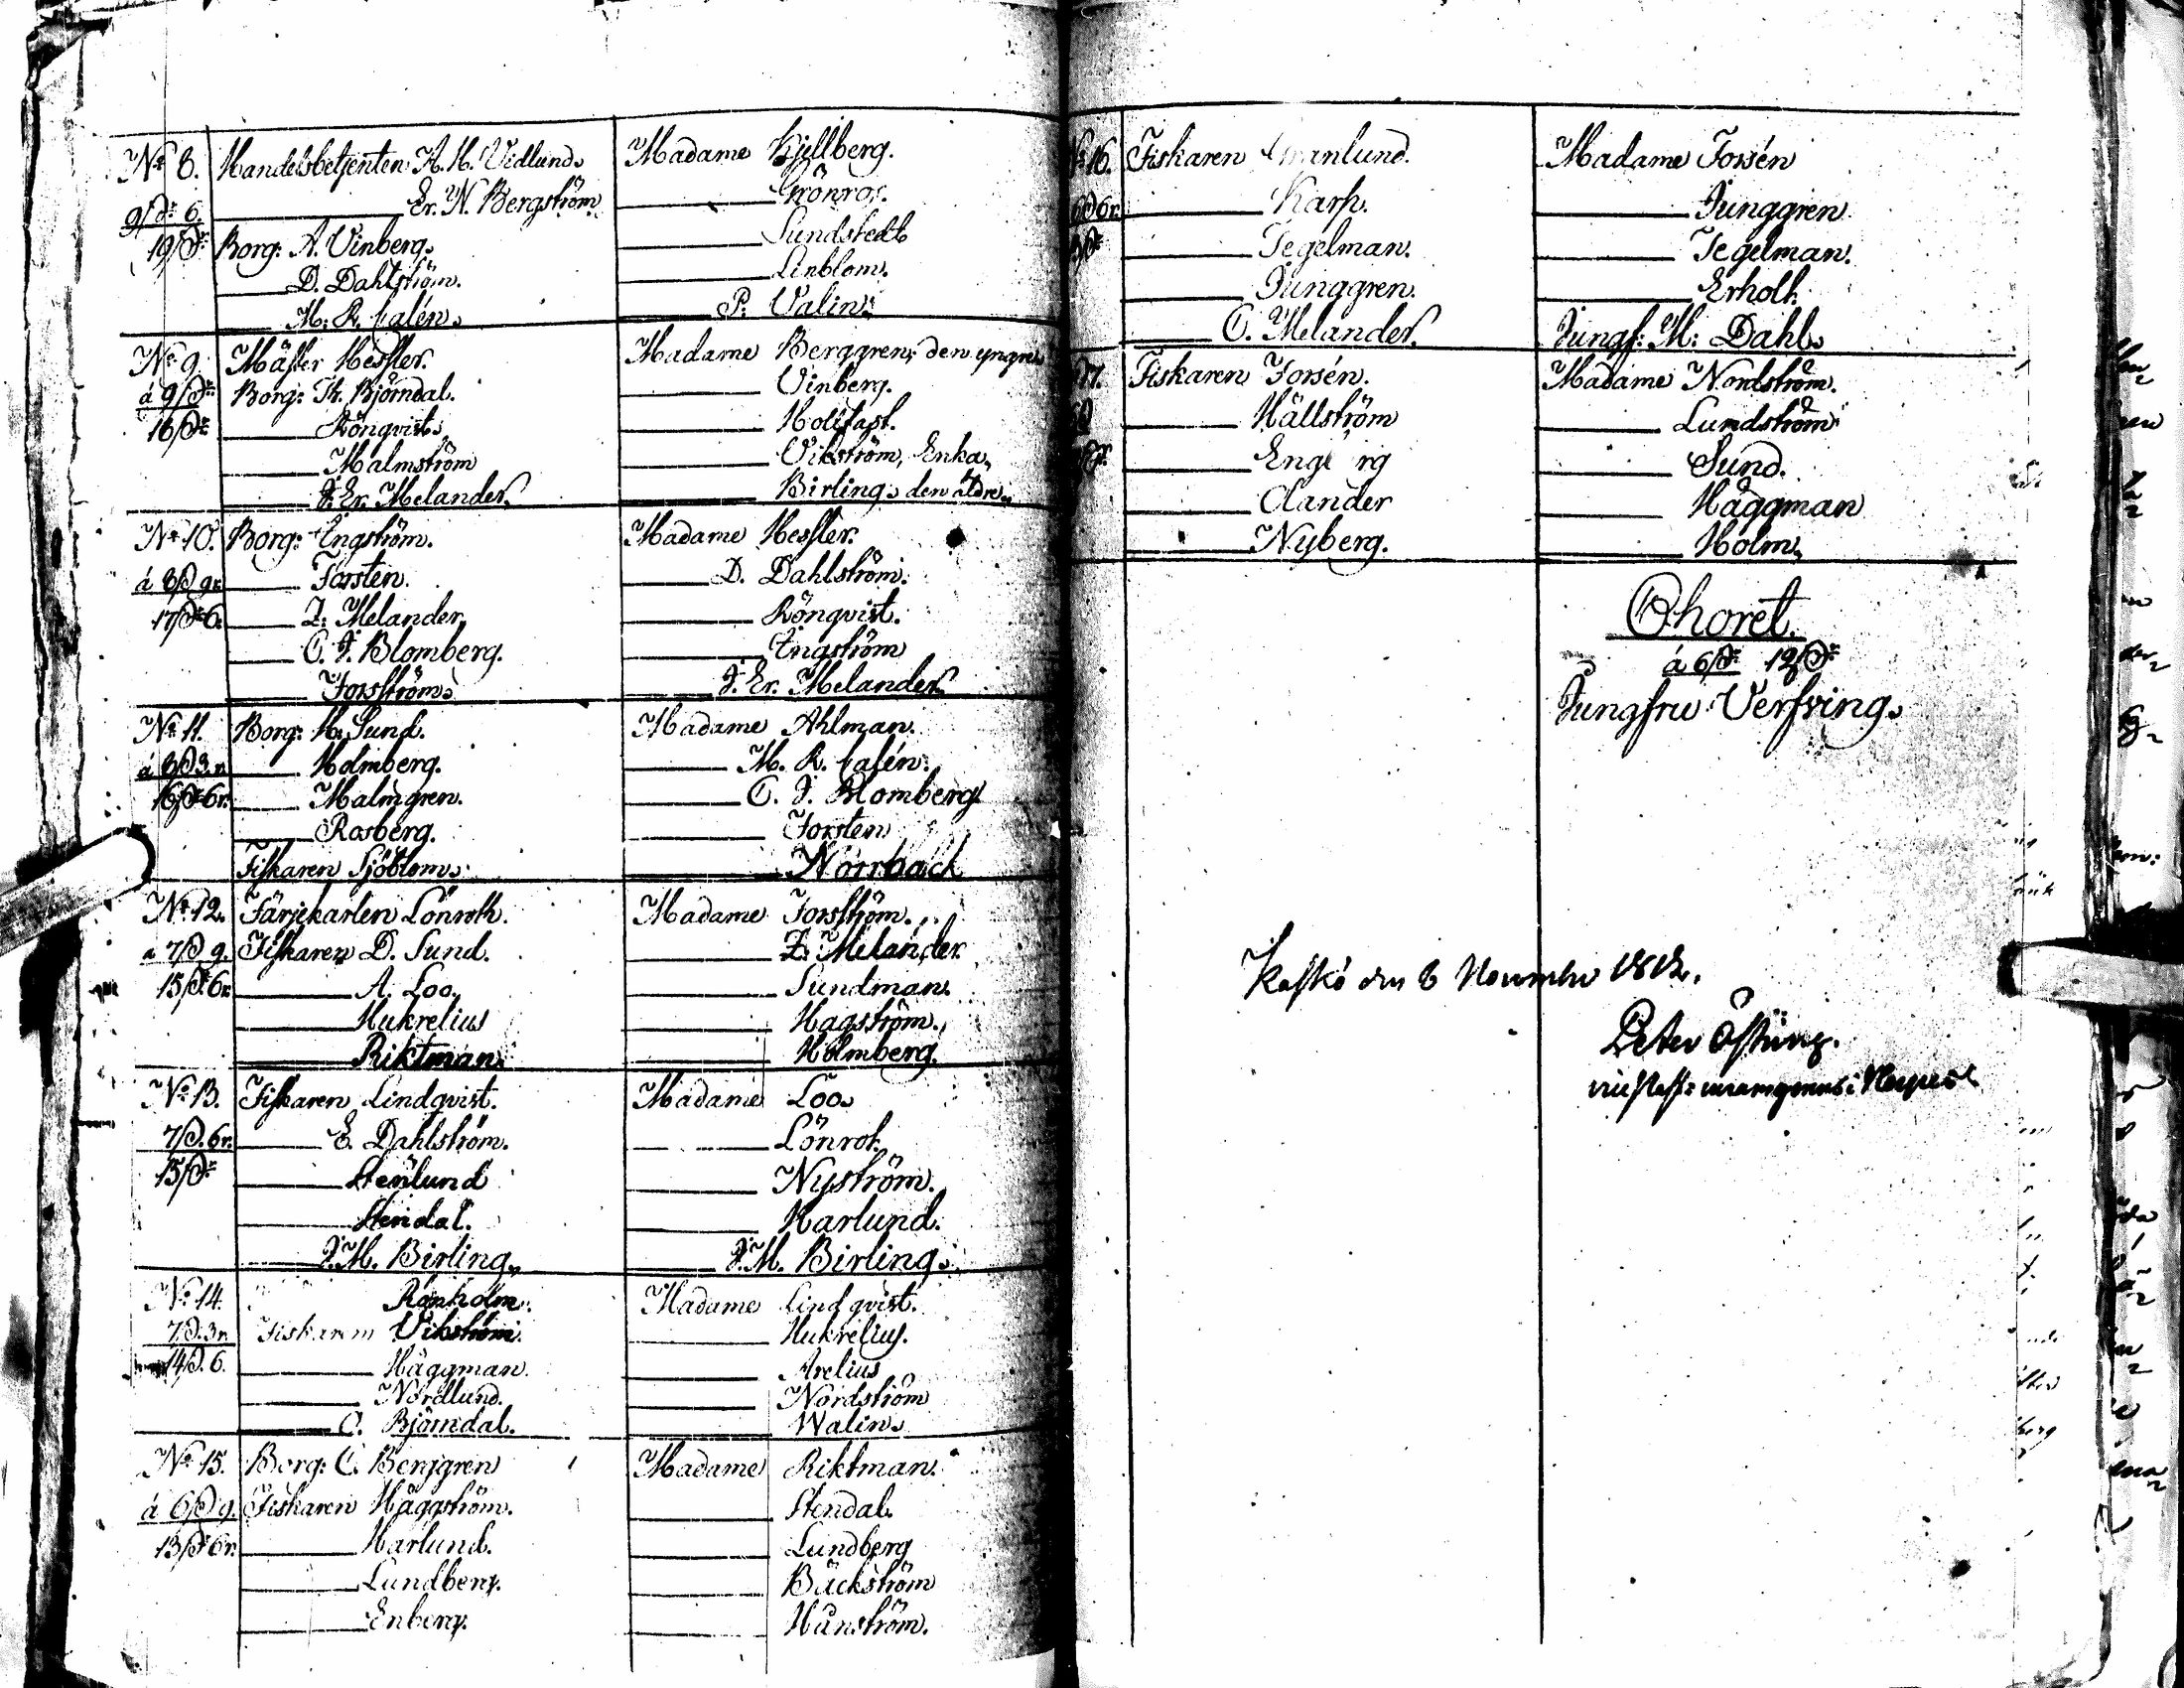 N:o 8. Handelsbetjenten A. H. Vidlund. Madame Kjellberg.
9 6. —— Er. N. Bergström. —— Grönros.
19 Borg: A. Vinberg. —— Sundstedt
—— D. Dahlström. —— Linblom.
—— M. R. Calén. —— P. Valin.
N:o 9. Mäster Hessler. Madame Berggren, den yngre
á 9 Borg: Th. Björndal. —— Vinberg.
16 —— Rönqvist. —— Holtfast.
—— Malmström —— Vikström, Enka,
—— J. Er. Melander. —— Birling, den äldre.
N:o 10. Borg: Engström. Madame Hessler.
á 8 9r. —— Forsten. —— D. Dahlström.
17 6. —— Z. Melander. —— Rönqvist.
—— C. J. Blomberg. —— Engström
—— Forsström. —— J. Er. Melander.
N:o 11. Borg: H. Sund. Madame Ahlman.
á 8 3. r —— Holmberg. —— M. R. Calén.
16 6r. —— Malmgren. —— C. J. Blomberg.
—— Rosberg. —— Forsten
Fiskaren Sjöblom. —— Norrback
N:o 12. Färjekarlen Lönroth. Madame Forsström.
a 7 9. Fiskaren D. Sund. —— Z. Melander.
15 6r. —— A. Loo. —— Sundman.
—— Hukrelius —— Hagström.
—— Riktman. —— Holmberg.
N:o 13. Fiskaren Lindqvist. Madame Loo.
7 6r. —— E. Dahlström. —— Lönrot.
15 —— Stenlund —— Nyström.
—— Stendal. —— Harlund.
—— J. M. Birling. —— J. M. Birling.
N:o 14. Rönholm. Madame Lindqvist.
7 3r. Fiskaren Vikström. —— Hukrelius.
14 6. —— Häggman. —— Arelius
—— Nordlund. —— Nordström
—— C. Björndal. —— Walin.
N:o 15. Borg: C. Berggren Madame Riktman.
á 6 9. Fiskaren Häggström. —— Stendal.
13 6r. —— Harlund. —— Lundberg
—— Lundberg. —— Bäckström
—— Enberg. —— Hanström.
N:o 16. Fiskaren Granlund. Madame Forsén
6r. —— Karp. —— Junggren.
—— Tegelman. —— Tegelman.
—— Junggren. —— Erholt.
—— C. Melander. Jungf: M: Dahl.
17. Fiskaren Forsén. Madame Nordström.
—— Hällström —— Lundström
—— Engberg —— Sund.
—— Clander —— Häggman
—— Nyberg. —— Holm.
Choret.
á 6 12
Jungfru Verfving.
Kaskö den 8 November 1812.
Peter Östring.